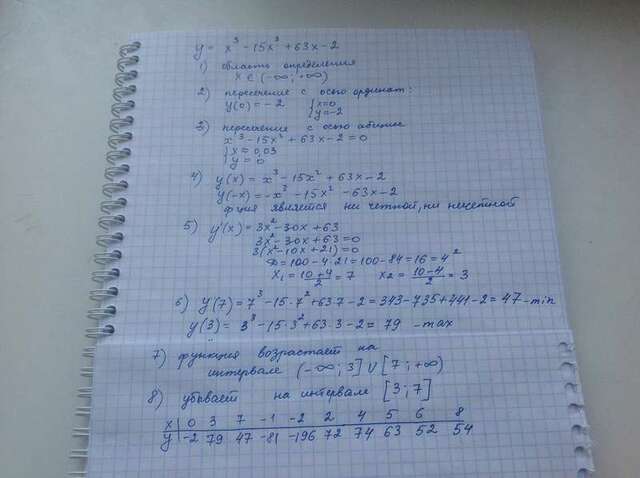 y = x³ - 15x³ + 63x - 2
1) область определения
x ∈ (-∞; +∞)
2) пересечение с осью ординат:
y(0) = -2 { x=0
{ y=-2
3) пересечение с осью абцисс
x³ - 15x² + 63x - 2 = 0
{ x ≈ 0,03
{ y = 0
4) y(x) = x³ - 15x² + 63x - 2
y(-x) = -x³ - 15x² - 63x - 2
ф-ция является ни четной, ни нечетной
5) y'(x) = 3x² - 30x + 63
3x² - 30x + 63 = 0
3(x² - 10x + 21) = 0
D = 100 - 4·21 = 100 - 84 = 16 = 4²
x₁ = (10+4)/2 = 7 x₂ = (10-4)/2 = 3
6) y(7) = 7³ - 15·7² + 63·7 - 2 = 343 - 735 + 441 - 2 = 47 - min
y(3) = 3³ - 15·3² + 63·3 - 2 = 79 - max
7) функция возрастает на
интервале (-∞; 3] ∪ [7; +∞)
8) убывает на интервале [3; 7]
x | 0 3 7 -1 -2 2 4 5 6 8
y | -2 79 47 -81 -196 72 74 63 52 54